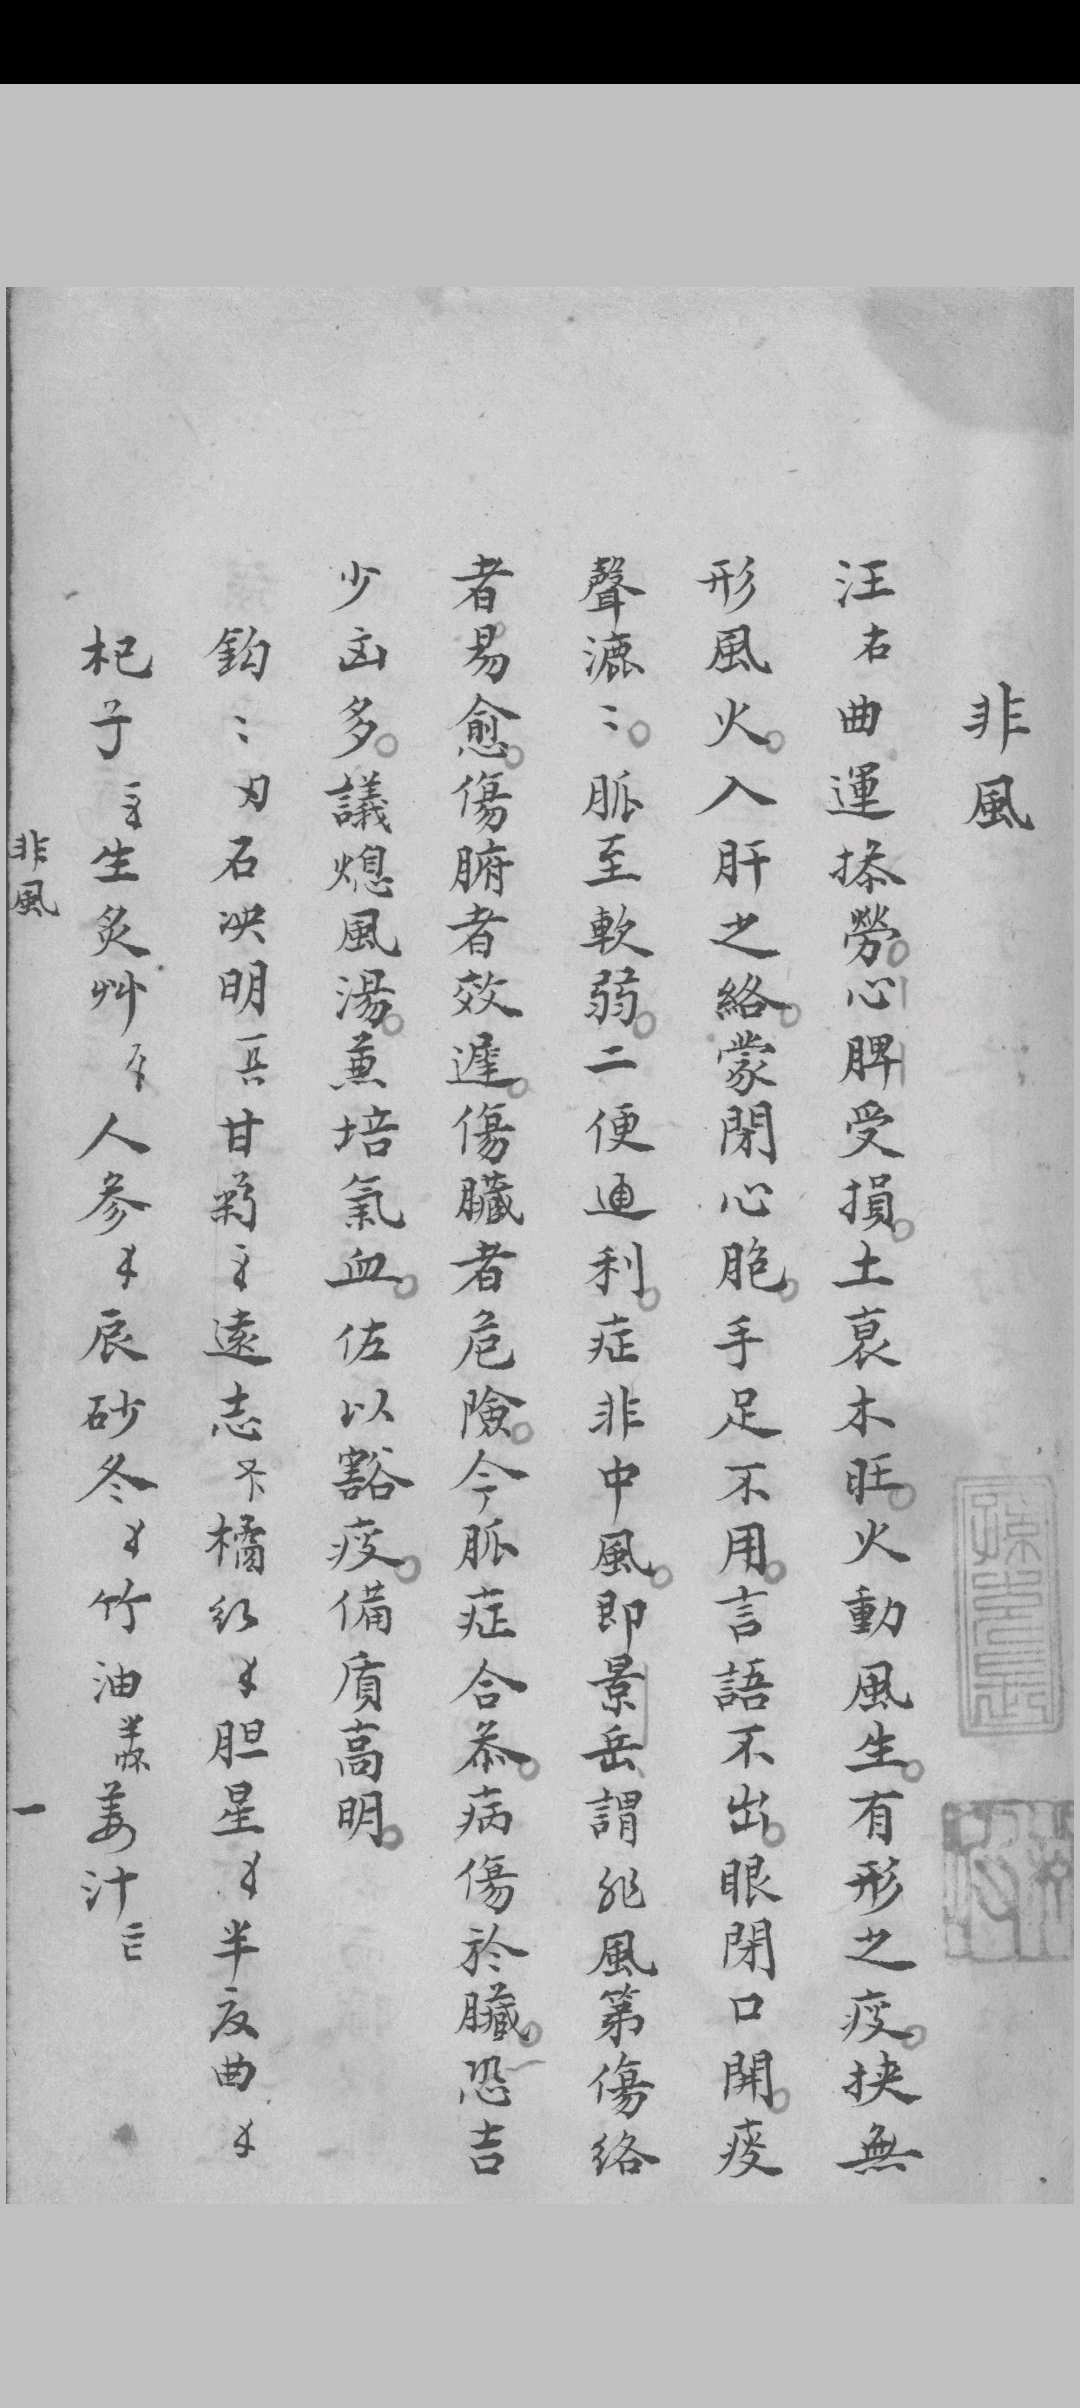 非風
汪右曲運搽勞心脾受損土衰木旺火動風生有形之痰挟無
形風火入肝之絡蒙閉心胞手足不用言語不出眼閉口開痰
聲漉〻脈至軟弱二便通利症非中風即景岳謂非風第傷絡
者易愈傷腑者效遲傷臟者危險今脈症合叅病傷於臟恐吉
少凶多議熄風湯兼培氣血佐以豁痰備质高明
鈎〻石决明甘菊遠志橘红胆星半夏曲
杞子生炙艸人參辰砂冬竹油姜汁
非風
一